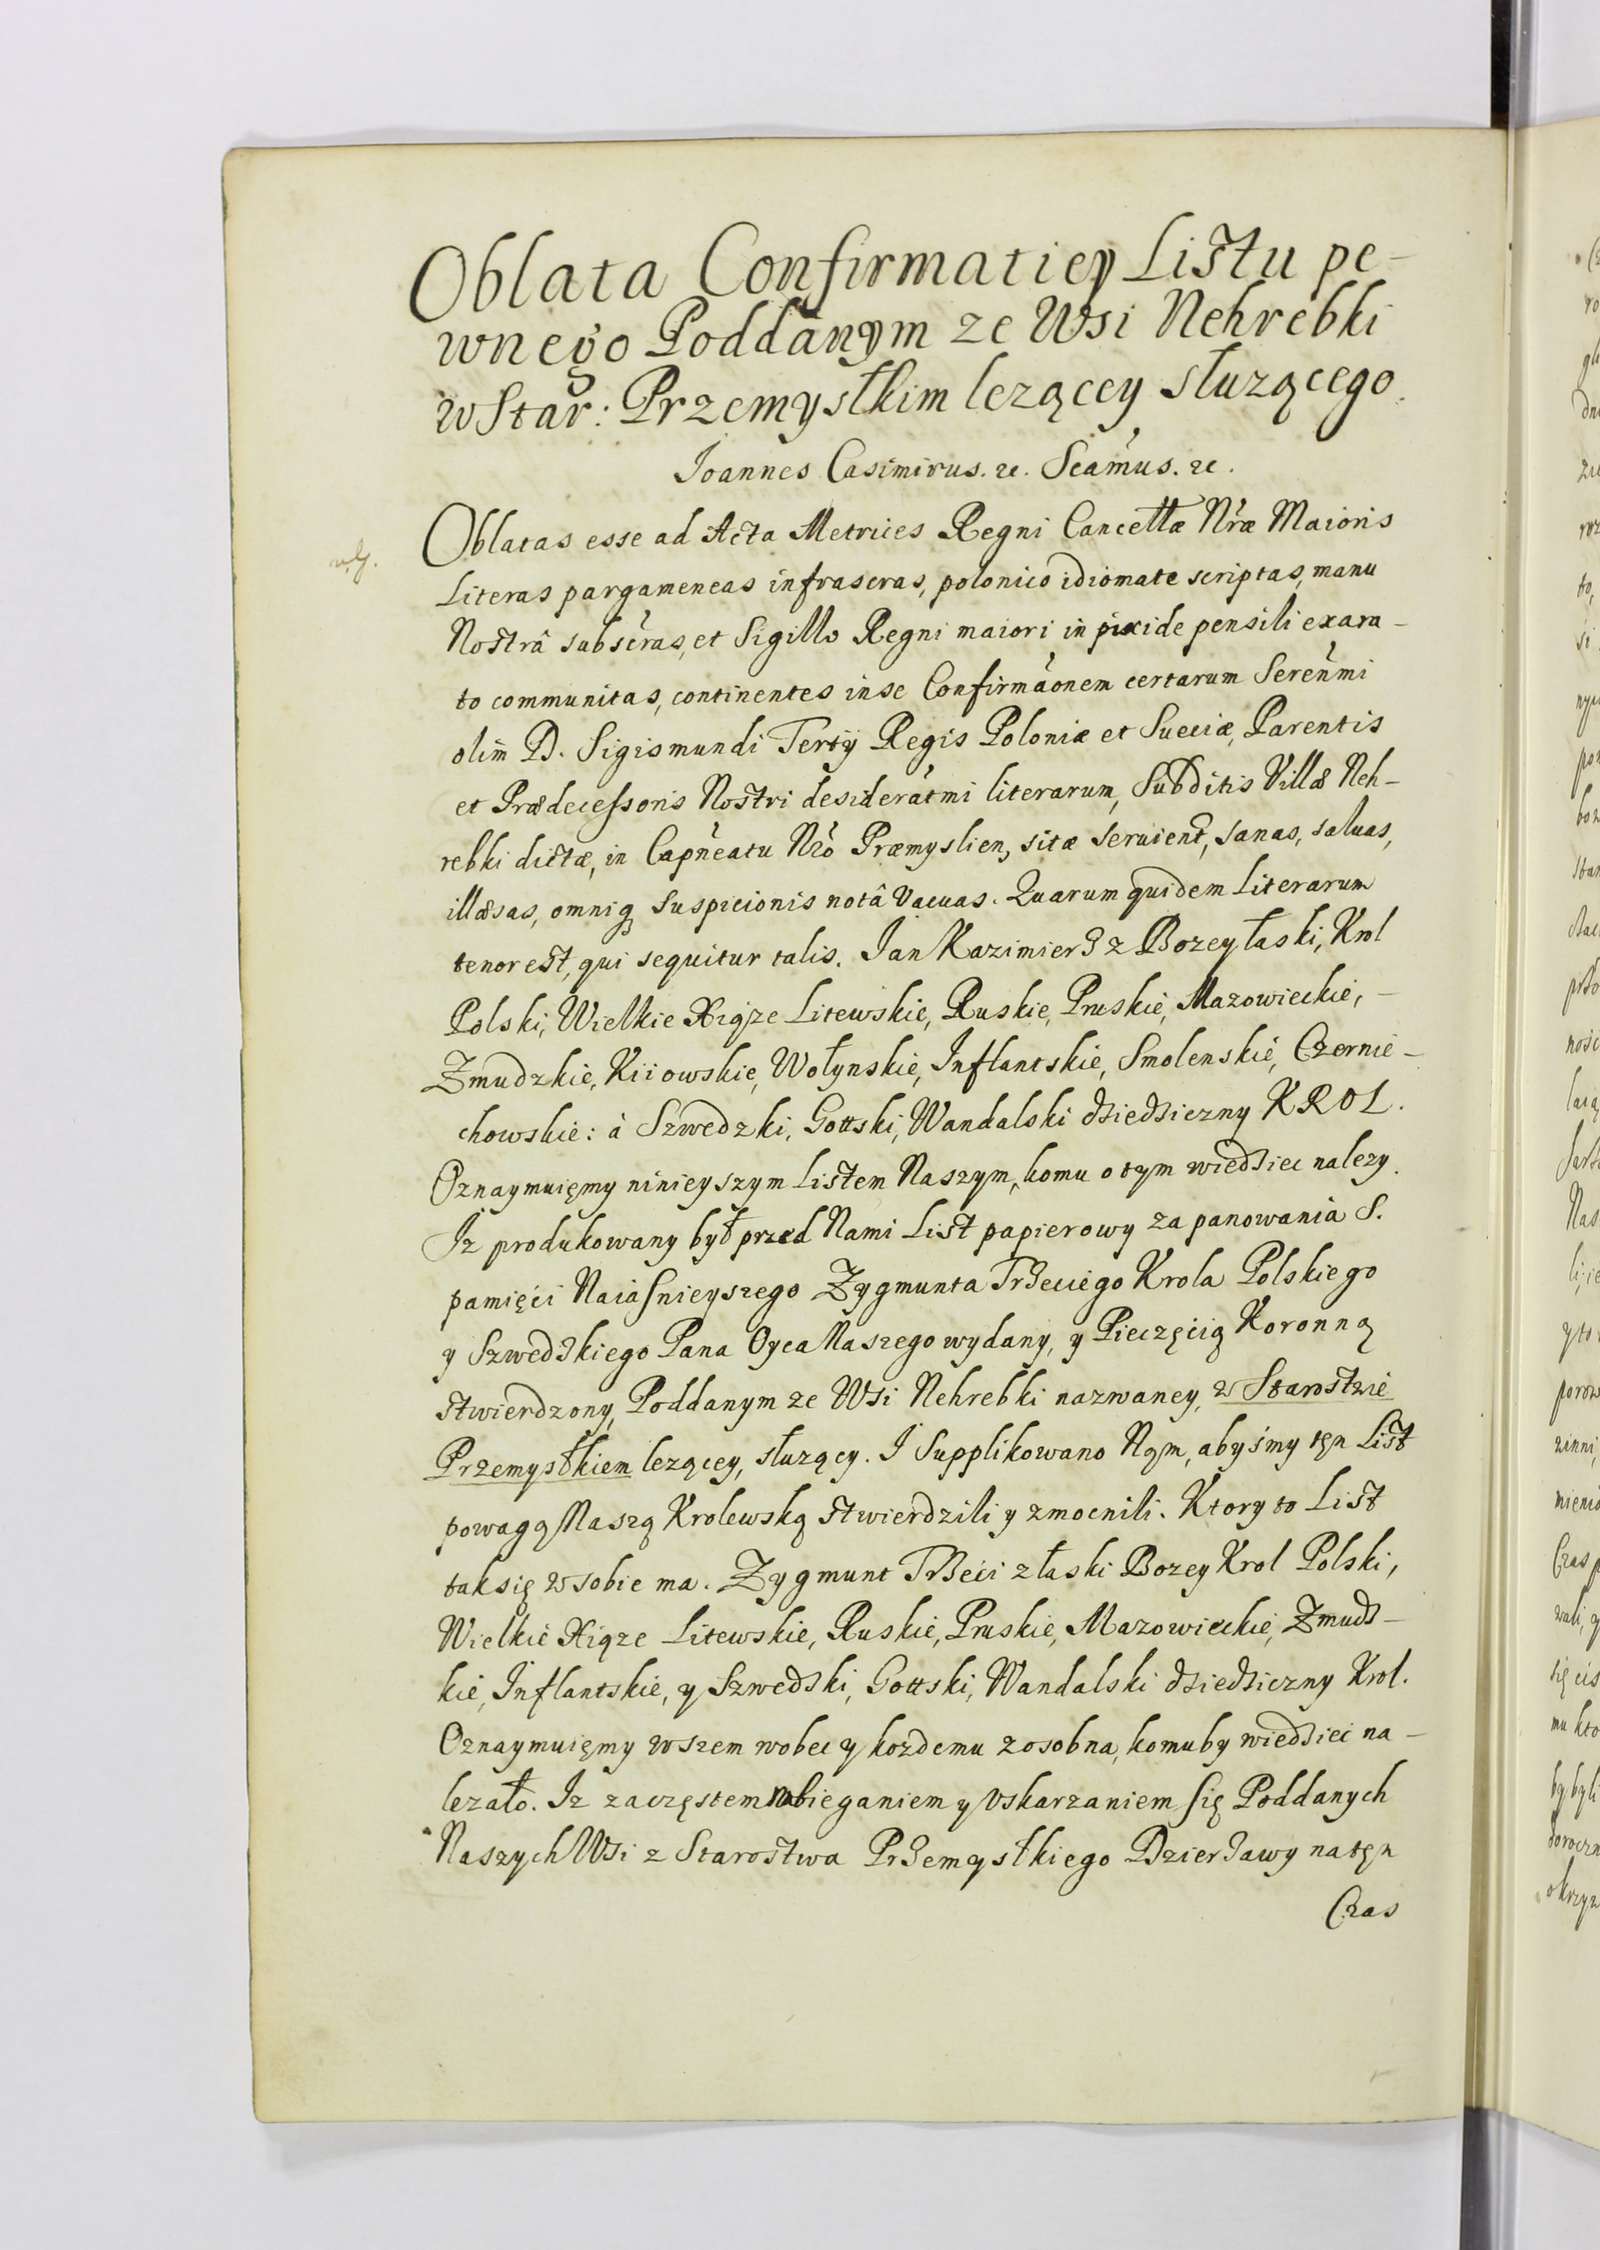 Oblata Confirmatiey Listu pe-
wnego Poddanym ze Wsi Nehrebki
w Star: Przemyslkim lezącey słuzącego.
Ioannes Casimirus. &c. Scamus. &c.
Oblatas esse ad Acta Metrices Regni Cancellæ Nræ Maioris
Literas pargameneas infrascras, polonico idiomate scriptas, manu
Nostrâ subscras, et Sigillo Regni maiori in pixide pensili exara-
to communitas, continentes in se Confirmaonem certarum Serenmi
olim D. Sigismundi Tertij Regis Poloniæ et Sueciæ, Parentis
et Prædecessoris Nostri desideratmi literarum, Subditis Villæ Neh-
rebki dictæ, in Capneatu Nro Præmyslien, sitæ seruient, sanas, saluas,
illæsas, omniq suspicionis notâ vacuas. Quarum quidem Literarum
tenor est, qui sequitur talis. Jan Kazimierz z Bozey łaski, Krol
Polski, Wielkie Xiąze Litewskie, Ruskie, Pruskie, Mazowieckie, -
Zmudzkie, Kiiowskie, Wołynskie, Inflantskie, Smolenskie, Czernie-
chowskie: à Szwedzki, Gottski, Wandalski dziedziczny KROL.
Oznaymuięmy ninieyszym Listem Naszym, komu o tym wiedziec nalezy.
Iz produkowany był przed Nami List papierowy za panowania S.
pamięci Naiasnieyszego Zygmunta Trzeciego Krola Polskiego
y Szwedzkiego Pana Oyca Naszego wydany, y Pieczęcią Koronną
stwierdzony, Poddanym ze Wsi Nehrebki nazwaney, w Starostwie
Przemyslkiem lezącey, słuzący. I Supplikowano Nąm, abyśmy tęn List
powagą Naszą Krolewską stwierdzili y zmocnili. Ktory to List
tak się w sobie ma. Zygmunt Trzeci z łaski Bozey Krol Polski,
Wielkie Xiąze Litewskie, Ruskie, Pruskie, Mazowieckie, Zmudz-
kie, Inflantskie, y Szwedski, Gottski, Wandalski dziedziczny Krol.
Oznaymuięmy wszem wobec y kozdemu zosobna, komuby wiedziec na-
lezało. Iz za częstem nabieganiem y vskarzaniem się Poddanych
Naszych Wsi z Starostwa Przemyslkiego Dzierzawy na tęn
Czas